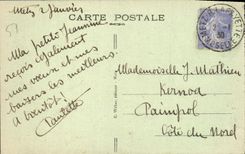 Metz 2 Janvier
CARTE POSTALE
Ma petite Jeannine
reçois également
mes vœux et mes
baisers les meilleurs
à bientôt!
Paulette
Mademoiselle J. Mathieu
Kernod
Paimpol
Côte du Nord